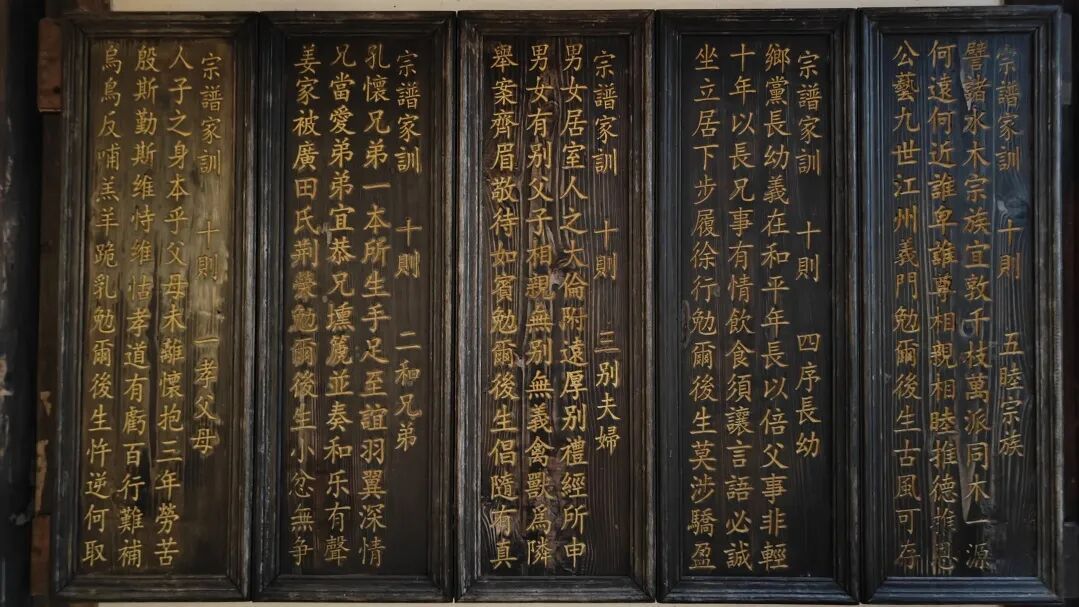 宗譜家訓 十則 一孝父母
人子之身本乎父母未離懷抱三年勞苦
殷斯勤斯維恃維怙孝道有虧百行難補
烏鳥反哺羔羊跪乳勉爾後生忤逆何取
宗譜家訓 十則 二和兄弟
孔懷兄弟一本所生手足至誼羽翼深情
兄當愛弟弟宜恭兄壎篪並奏和乐有聲
姜家被廣田氏荆榮勉爾後生小忿無争
宗譜家訓 十則 三别夫婦
男女居室人之大倫附遠厚别禮經所申
男女有别父子相親無别無義禽獸爲隣
舉案齊眉敬待如賓勉爾後生倡隨有真
宗譜家訓 十則 四序長幼
鄉黨長幼義在和平年長以倍父事非輕
十年以長兄事有情飲食須讓言語必誠
坐立居下步履徐行勉爾後生莫涉驕盈
宗譜家訓 十則 五睦宗族
譬諸水木宗族宜敦千枝萬派同木一源
何遠何近誰卑誰尊相親相睦推德推恩
公藝九世江州義門勉爾後生古風可存